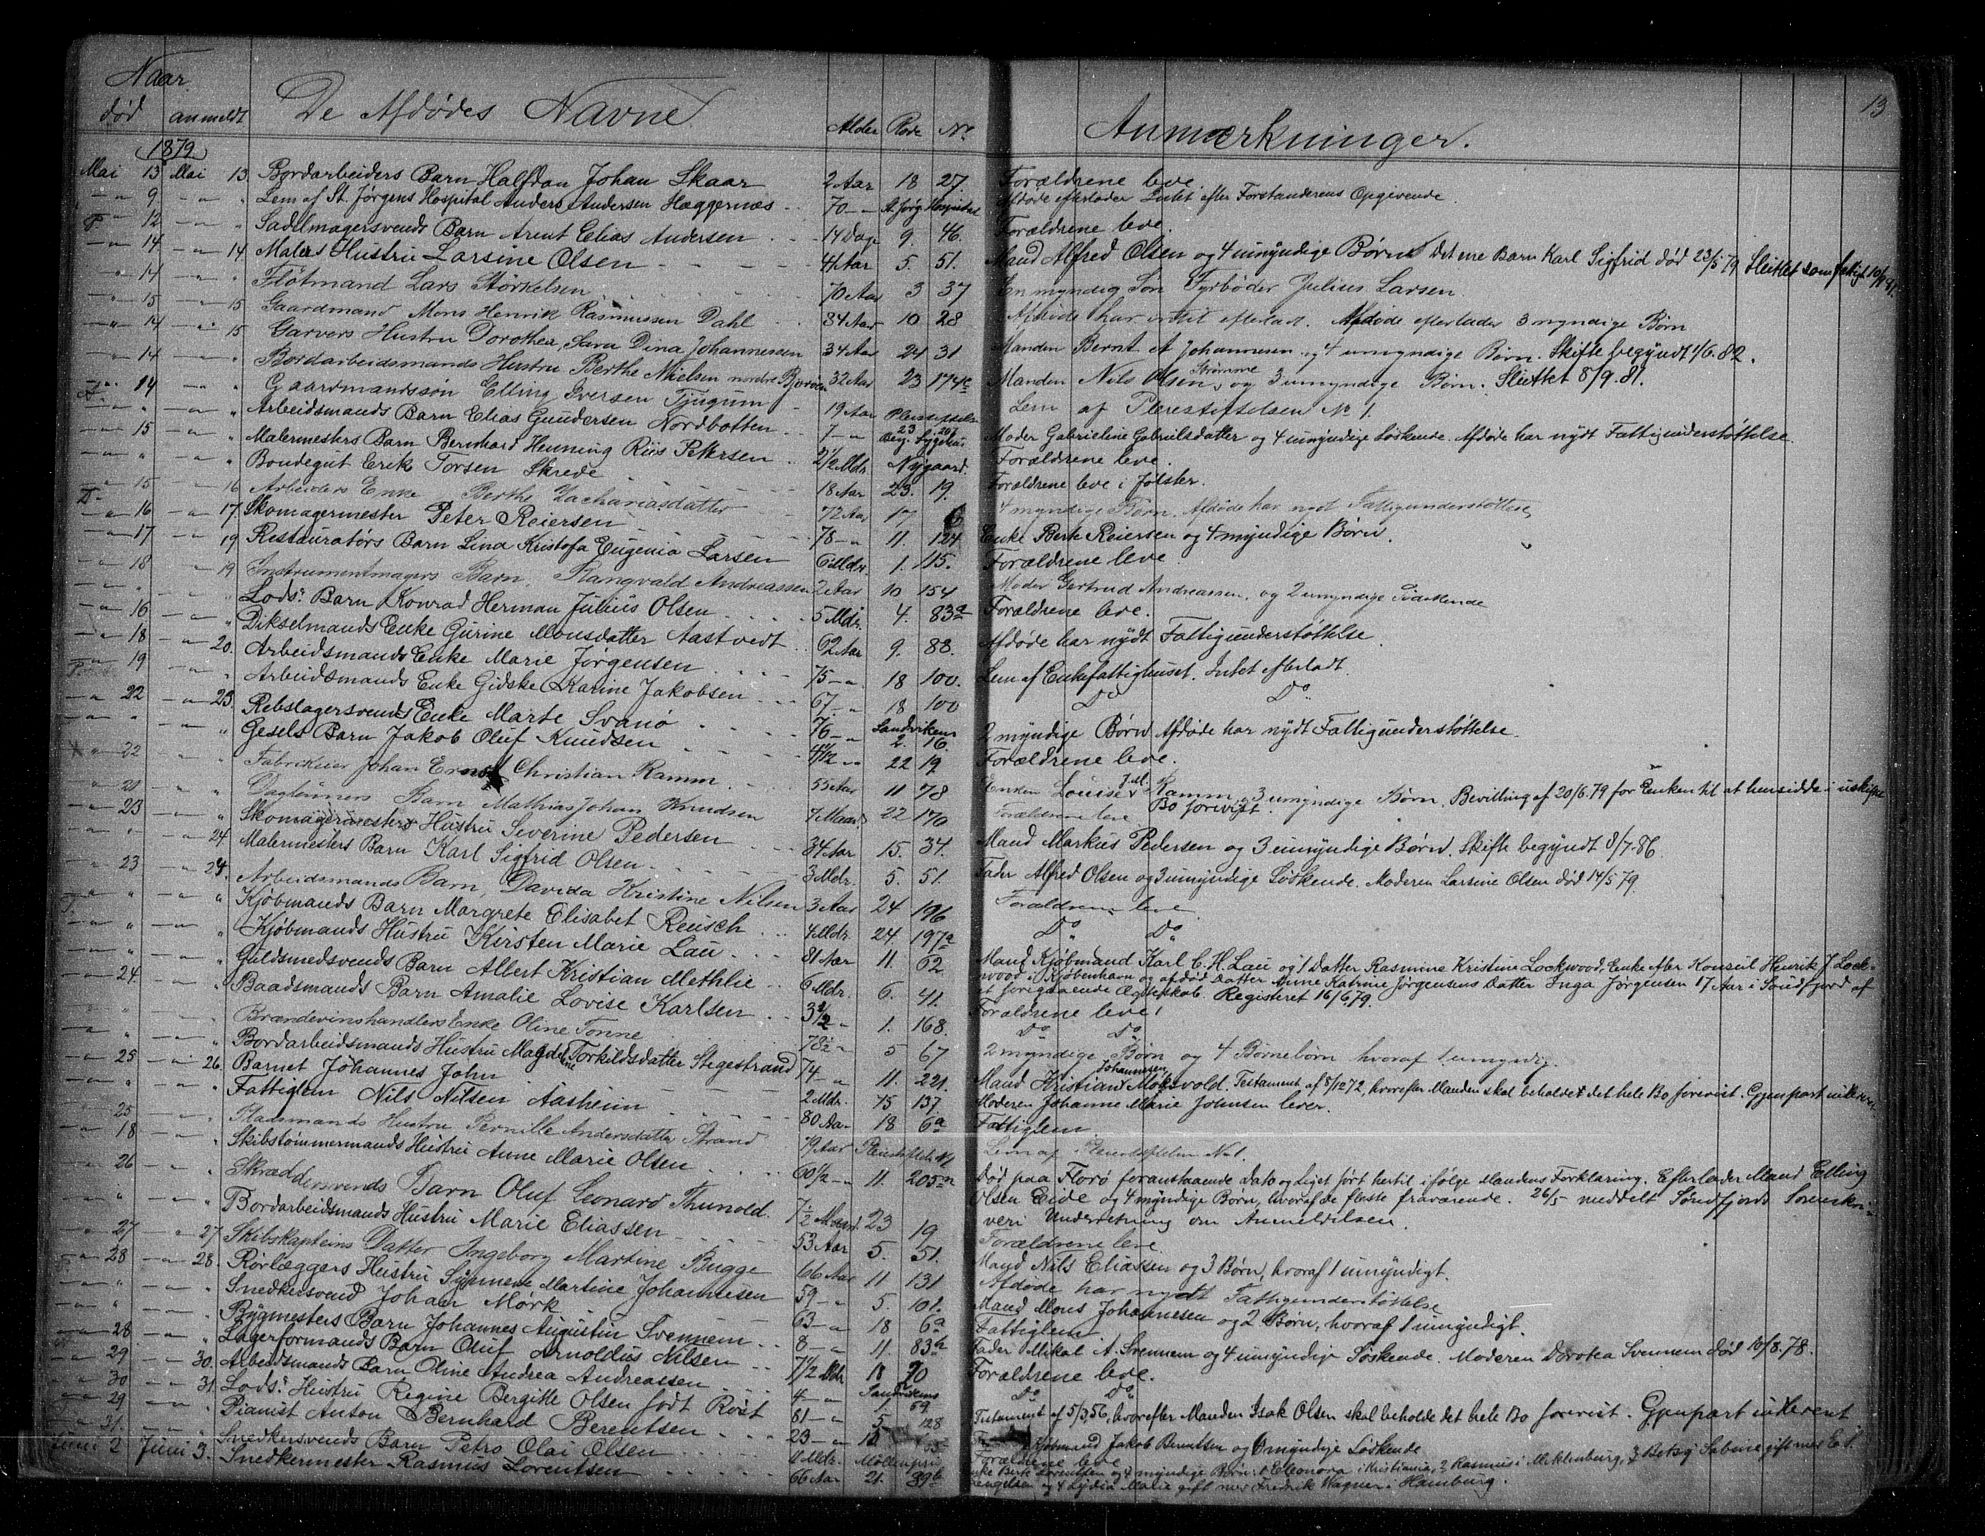 13
Naar
død anmeldt De Afdødes Navne Alder Rode No. Anmærkninger.
1879
Mai 13 Mai 13. Bordarbeiders Barn Halfdan Johan Skaar 2 Aar 18 27. Forældrene leve
" 9 " " Lem af St. Jørgens Hospital Anders Andersen Hæggernæs 70 " St. Jørg. Hospital Afdøde efterlader Intet efter Forstanderens Opgivende.
" 12 " " Sadelmagersvends Barn Arent Elias Andersen 14 Dage 9. 46. Forældrene leve.
" 14 " 14 Malers Hustru Larsine Olsen 41 Aar 5. 51. Mand Alfred Olsen og 4 umyndige Børn. Det ene Barn Karl Sigfrid død 23/5 79. Sluttet som fatigt
" 14 " " Fløtmand Lars Størkelsen 70 Aar 3 37 En myndig Søn Fyrbøder Julius Larsen.
" 15 " 15 Gaardmand Mons Henrik Rasmussen Dahl 84 Aar 10 28 Afdøde har intet efterladt. Afdøde efterlader 3 myndige Børn
" 14 " 15 Garvers Hustru Dorothea Sara Dina Johannessen 34 Aar 24 31 Manden Bernt A Johannesen og 4 umyndige Børn. Skifte begyndt 4/6. 82.
" 14 " " Bordarbeidsmands Hustru Berthe Nielsen 32 Aar 23 174c Manden Nils Olsen Strømme og 3 umyndige Børn. Sluttet 8/9. 81.
" 14 " " Gaardmandssøn Elling Iversen Tjugum 19 Aar Pleiestiftelse Lem af Pleiestiftelsen No 1.
" " " " Arbeidsmands Barn Elias Gundersen Nordbotten 7 " 23 207 Moder Gabrieline Gabrielsdatter og 4 umyndige Søskende. Afdøde har nydt Fattigunderstøttelse.
" 15 " " Malermesters Barn Bernhard Henning Riis Petersen 2 1/2 Mdr. Nygaard Forældrene leve.
" " " " Bondegut Erik Torsen Skrede 18 Aar 23. 19. Forældrene leve i Jølster.
" 15 " 16 Arbeiders Enke Berthe Zachariasdatter 72 Aar 17 4 myndige Børn. Afdøde har nydt Fattigunderstøttelse
" 16 " 17. Skomagermester Peter Reiersen 78 " 11. 124 Enke Berte Reiersen og 4 myndige Børn.
" 17 " 19 Restauratørs Barn Lina Kristofa Eugenia Larsen 6 Mdr. 1. 115. Forældrene leve
" 18 " 19 Instrumentmagers Barn, Rangvald Andreassen 2 Aar 10 154 Moder Gertrud Andreassen, og 2 umyndige Sødskende
" " " " Lods. Barn Konrad Herman Julius Olsen 5 Mdr. 4. 83a Forældrene leve.
" 16 " " Dikselmands Enke Gurine Monsdatter Aastvedt 62 Aar 9. 88. Afdøde har nydt Fattigunderstøttelse.
" 18 " 20. Arbeidsmands Enke Marie Jørgensen 75 " 18 100. Lem af Enkefattighuset. Intet efterladt.
" 19 " " Arbeidsmands Enke Gidske Karine Jakobsen 67 " 18 100 Do Do
" 22 " 23. Rebslagersvends Enke Marte Svanø 76 " Sandvikens 2. 16. 2 myndige Børn. Afdøde har nydt Fattigunderstøttelse.
" " " " Gesels Barn Jakob Oluf Knudsen 4 1/2 " 22 19 Forældrene leve.
" 22 " " Fabrikeier Johan Ernst Christian Ramm. 55 Aar 11 78 Enken Louise J. M. Ramm, 3 umyndige Børn. Bevilling af 20/6 79 for Enken til at hensidde i uskiftet Bo forevist.
" 21 " " Dagløners Barn Mathias Johan Knudsen 7 Maan. 22 170 Forældrene leve
" 23 " " Skomagermesters Hustru Severine Pedersen 34 Aar 15. 34. Mand Markus Pedersen og 3 umyndige Børn. Skifte begyndt 8/7. 86.
" " " 24. Malermesters Barn Karl Sigfrid Olsen 3 Mdr. 5. 51. Fader Alfred Olsen og 3 umyndige Søskende. Moderen Larsine Olsen død 14/5 79.
" 23 " 24. Arbeidsmands Barn, Davida Kristine Nilsen 3 Aar 24 196 Forældrene leve
" " " " Kjøbmands Barn Margrete Elisabet Reusch 4 Mdr. 24. 197a Do Do
" " " " Kjøbmands Hustru Kirsten Marie Lau 81 Aar 11. 62 Mand Kjøbmand Karl C. H. Lau og 1 Datter Rasmine Kristine Lockwood, Enke efter Konsul Henrik J. Lock-
wood i Kjøbenhavn og afdød Datter Anne Katrine Jørgensens Datter Inga Jørgensen 17 Aar i Søndfjord af
et foregaaende Ægteskab. Registeret 16/6 79.
" " " " Guldsmedsvends Barn Albert Kristian Methlie 6 Mdr. 6. 41. Forældrene leve!
" 24 " " Baadsmands Barn Amalie Lovise Karlsen 3 1/2 " 1. 168. Do Do
" " " " Brændevinshandlers Enke Oline Tonne 78 " 5 67 2 myndige Børn og 4 Børnebørn hvoraf 1 umyndig
" " " " Bordarbeidsmands Hustru Magdelene Torkildsdatter Stegestrand 74 " 11. 221. Mand Kristian Johannesen Moksvold. Testament af 5/12 72, hvorefter Manden skal beholde det hele Bo forevist. Gjenpart indleveret
" 25 " 26. Barnet Johannes John 2 Mdr. 15 137. Moderen Johanne Marie Johnsen lever.
" " " " Fattiglem Nils Nilsen Aasheim 80 Aar 18 6a Fattiglem.
" 25 " " Hustru Pernille Andersdatter Strand 79 Aar Pleiestiftelse Lem af Pleiestiftelsen No 1.
" 18 " " Skibstømmermands Hustru Anne Marie Olsen 60 1/2 " 11. 205 Død paa Florø foranstaaende Dato og Liget ført hertil ifølge Mandens Forklaring. Efterlader Mand Elling
Olsen Eide og 4 myndige Børn, hvoraf de fleste fraværende. 26/5 meddelt Søndfjords Sorenskri-
veri Underretning om Anmeldelsen.
" 26 " " Skræddersvends Barn Oluf Leonard Thunold 7 1/2 Maaned 23 19 Forældrene leve
" " " " Bordarbeidsmands Hustru Marie Eliassen 53 Aar 5. 51. Mand Nils Eliassen og 3 Børn, hvoraf 1 umyndigt.
" 27 " 27. Skibskapteins Datter Ingeborg Martine Bugge 66 Aar 11 131 Afdøde har nydt Fattigunderstøttelse
" 28 " 28. Rørlæggers Hustru Synneve Martine Johannesen 59 " 5. 101. Mand Mons Johannesen og 2 Børn, hvoraf 1 umyndigt.
" " " " Snedkersvend Johan Mørk 63 " 18 6a Fattiglem
" " " " Bygmesters Barn Johannes Augustin Svennem 8 " 11. 83b Fader Mikal A. Svennem og 4 umyndige Søskende. Moderen Dorotea Svennem død 10/8. 78.
" 28 " " Lagerformands Barn Oluf Arnoldus Nilsen 7 1/2 Mdr. 18 70 Forældrene leve.
" 29 " 30. Arbeidsmands Barn Oline Andrea Andreassen 4 " Sandvikens 1. 59 Do Do
" 30 " 31. Lods. Hustru Regine Bergitte Olsen født Rost 81 " 5 128 Testament af 5/3, 56, hvorefter Manden Isak Olsen skal beholde det hele Bo forevist. Gjenpart indleveret
" 29 " " Pianist Anton Bernhard Berentsen 23 " 12 Kjøbmand Jakob Berentsen og 6 myndige Søskende
" 31 " " Snedkersvends Barn Petro Olai Olsen 11 Mdr. Møllenpris Forældrene leve
Juni 2 Juni 3. Snedkermester Rasmus Lorentsen 66 Aar 21. 89b Enke Berte Lorentsen og 4 myndige Børn: 1 Eleonora i Kristiania, 2 Rasmus i Meklenburg, 3 Betsy Sabine gift med E. S.
Engelsen og 4 Lydia Malie gift med Fredrik Wagner i Hamburg.